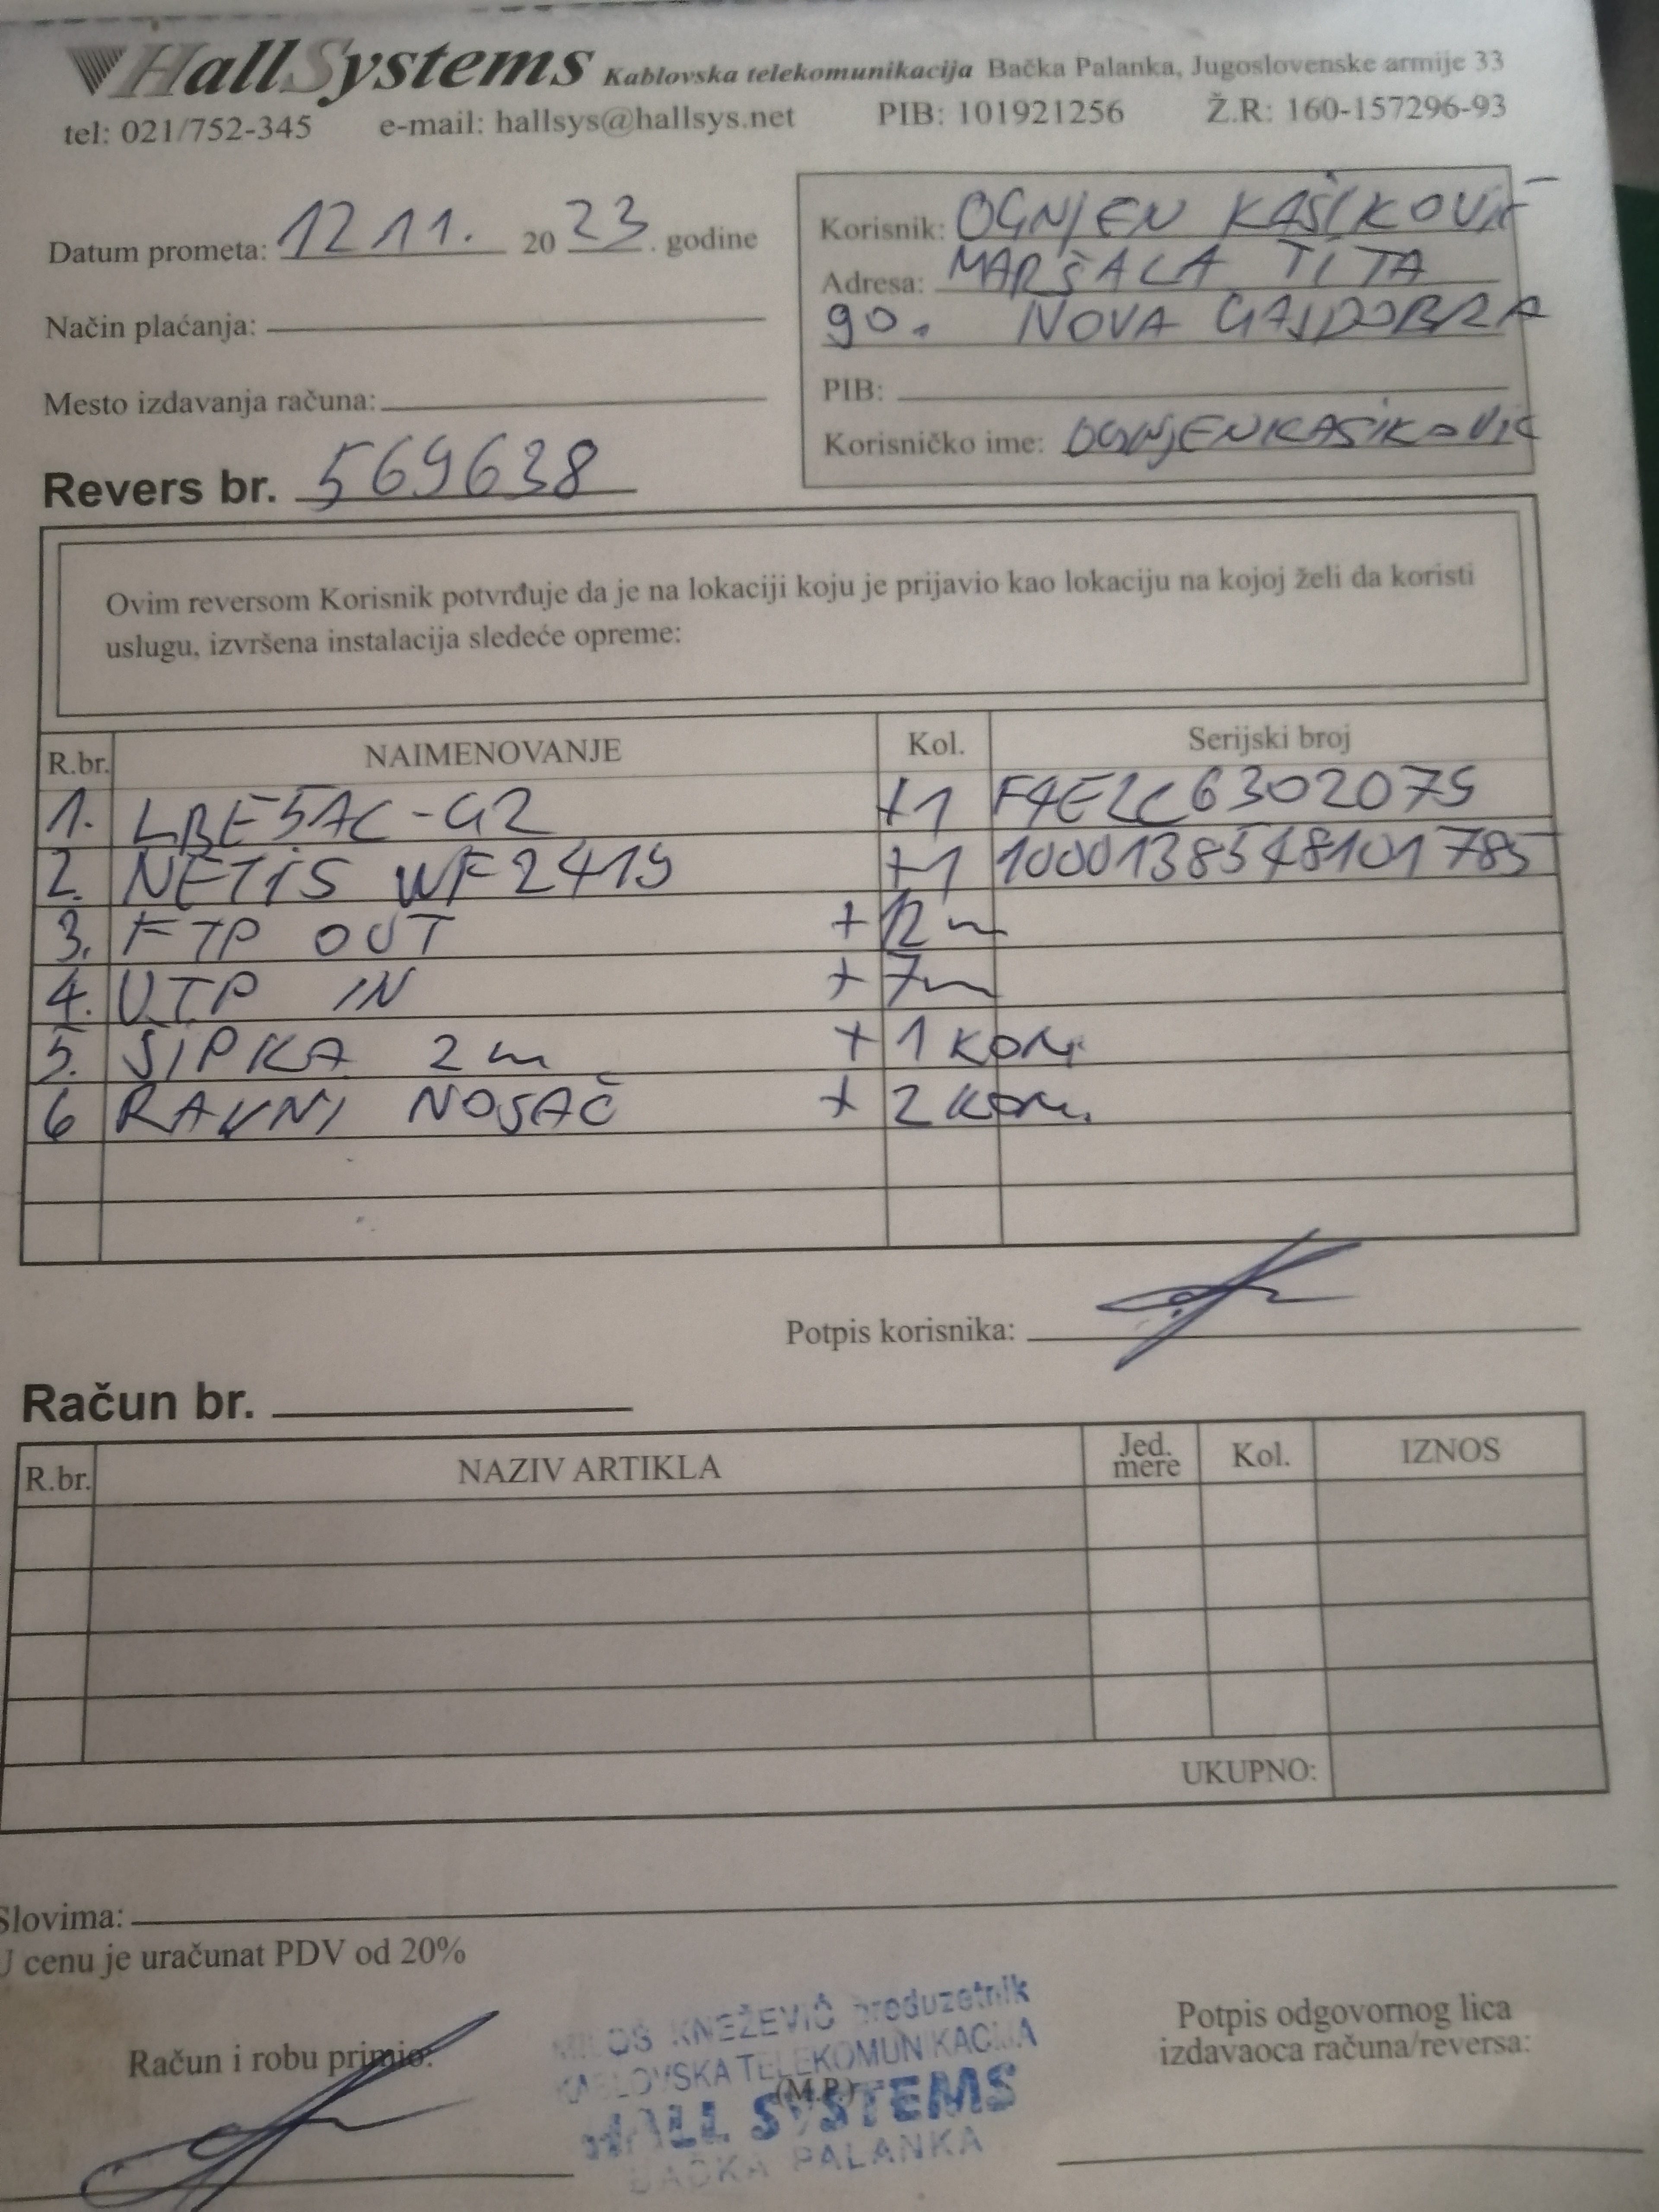 HallSystems Kablovska telekomunikacija Bačka Palanka, Jugoslovenske armije 33
tel: 021/752-345 e-mail: hallsys@hallsys.net PIB: 101921256 Ž.R: 160-157296-93
Datum prometa: 12 11. 20 23. godine
Način plaćanja:
Mesto izdavanja računa:
Korisnik: OGNJEN KAŠIKOVIĆ
Adresa: MARŠALA TITA
90. NOVA GAJDOBRA
PIB:
Korisničko ime: OGNJENKASIKOVIC
Revers br. 569638
Ovim reversom Korisnik potvrđuje da je na lokaciji koju je prijavio kao lokaciju na kojoj želi da koristi
uslugu, izvršena instalacija sledeće opreme:
R.br. NAIMENOVANJE Kol. Serijski broj
1. LBE5AC-G2 +1 F4E2C6302079
2. NETIS WF2419 +1 1000138548101785
3. FTP OUT +12m
4. UTP IN +7m
5. ŠIPKA 2m +1 KOM.
6 RAVNI NOSAČ +2 KOM.
Potpis korisnika:
Račun br.
R.br. NAZIV ARTIKLA Jed. mere Kol. IZNOS
UKUPNO:
Slovima:
U cenu je uračunat PDV od 20%
Račun i robu primio:
MILOŠ KNEŽEVIĆ preduzetnik
KABLOVSKA TELEKOMUNIKACIJA
(M.P.)
HALL SYSTEMS
BAČKA PALANKA
Potpis odgovornog lica
izdavaoca računa/reversa: